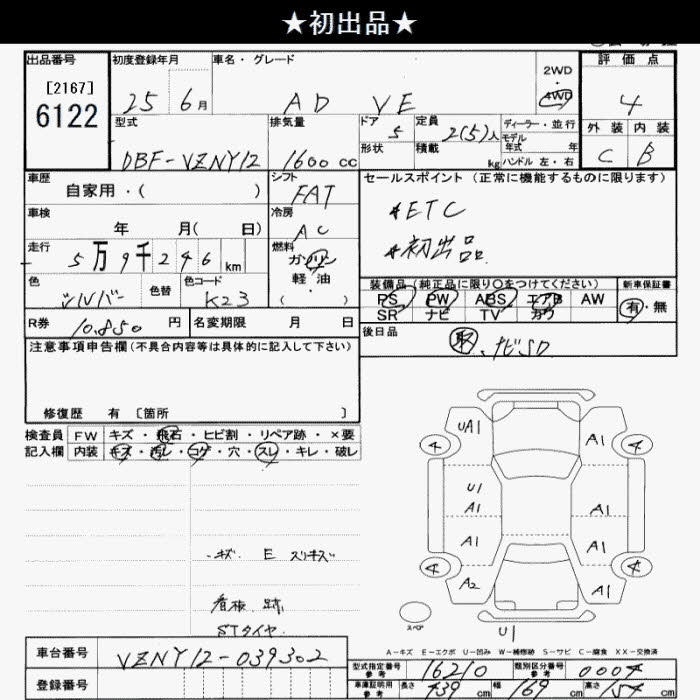 ★初出品★
出品番号 初度登録年月 車名・グレード 2WD・4WD 評価点
[2167]
6122 25 6月 AD VE 4
型式 排気量 ドア 定員 ディーラー・並行 外装 内装
DBF-VZNY12 1600cc 5 2(5)人 モデル年式 年 C B
形状 積載 kg ハンドル 左・右
車歴 シフト セールスポイント (正常に機能するものに限ります)
自家用・( ) FAT
車検 冷房 ★ETC
年 月( 日) AC ★初出品
走行 燃料
5万9千246km ガソリン
軽・油
・( )
色 色替 色コード 装備品(純正品に限り○をつけてください) 新車保証書
シルバー K23 PS PW ABS エアB AW 有・無
SR ナビ TV カワ
R券 10.850円 名変期限 月 日 後日品
取、ナビSD
注意事項申告欄(不具合内容等は具体的に記入して下さい)
修復歴 有 〔箇所 〕
検査員 FW キズ・飛石・ヒビ割・リペア跡・×要
記入欄 内装 キズ・汚レ・コゲ・穴・スレ・キレ・破レ
UA1 A1
4 4
U1
A1 A1
A1 A1
4 4
A2 A1
スペア
U1
キズ E スリキズ
看板跡
STタイヤ
A-キズ E-エクボ U-凹み W-補修跡 S-サビ C-腐食 XX-交換済
車台番号 VZNY12-039302
型式指定番号 参考 16210 類別区分番号 参考 0004
登録番号
車庫証明用 参考 長さ 439cm 幅 169cm 高さ 154cm